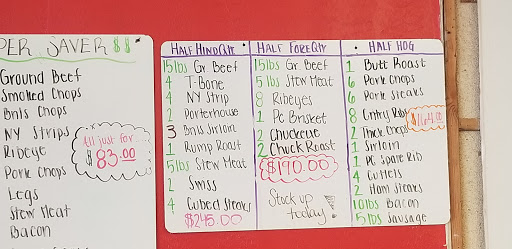 PER SAVER $$
Ground Beef
Smoked Chops
Bnls Chops
NY Strips
Ribeye
Pork Chops
Legs
Stew Meat
Bacon
All just for
$83.00
Half Hind Qtr
15lbs Gr Beef
4 T-Bone
4 NY Strip
2 Porterhouse
3 Bnls Sirloin
1 Rump Roast
5lbs Stew Meat
2 Swiss
4 Cubed Steaks
$245.00
Half Fore Qtr
15lbs Gr Beef
5lbs Stew Meat
8 Ribeyes
1 Pc Brisket
2 Chuckeye
2 Chuck Roast
$190.00
Stock up
today!
Half Hog
1 Butt Roast
6 Pork Chops
6 Pork Steaks
8 Cntry Ribs
2 Thick Chops
1 Sirloin
1 PC Spare Rib
4 Cutlets
2 Ham Steaks
10lbs Bacon
5lbs Sausage
$164.00